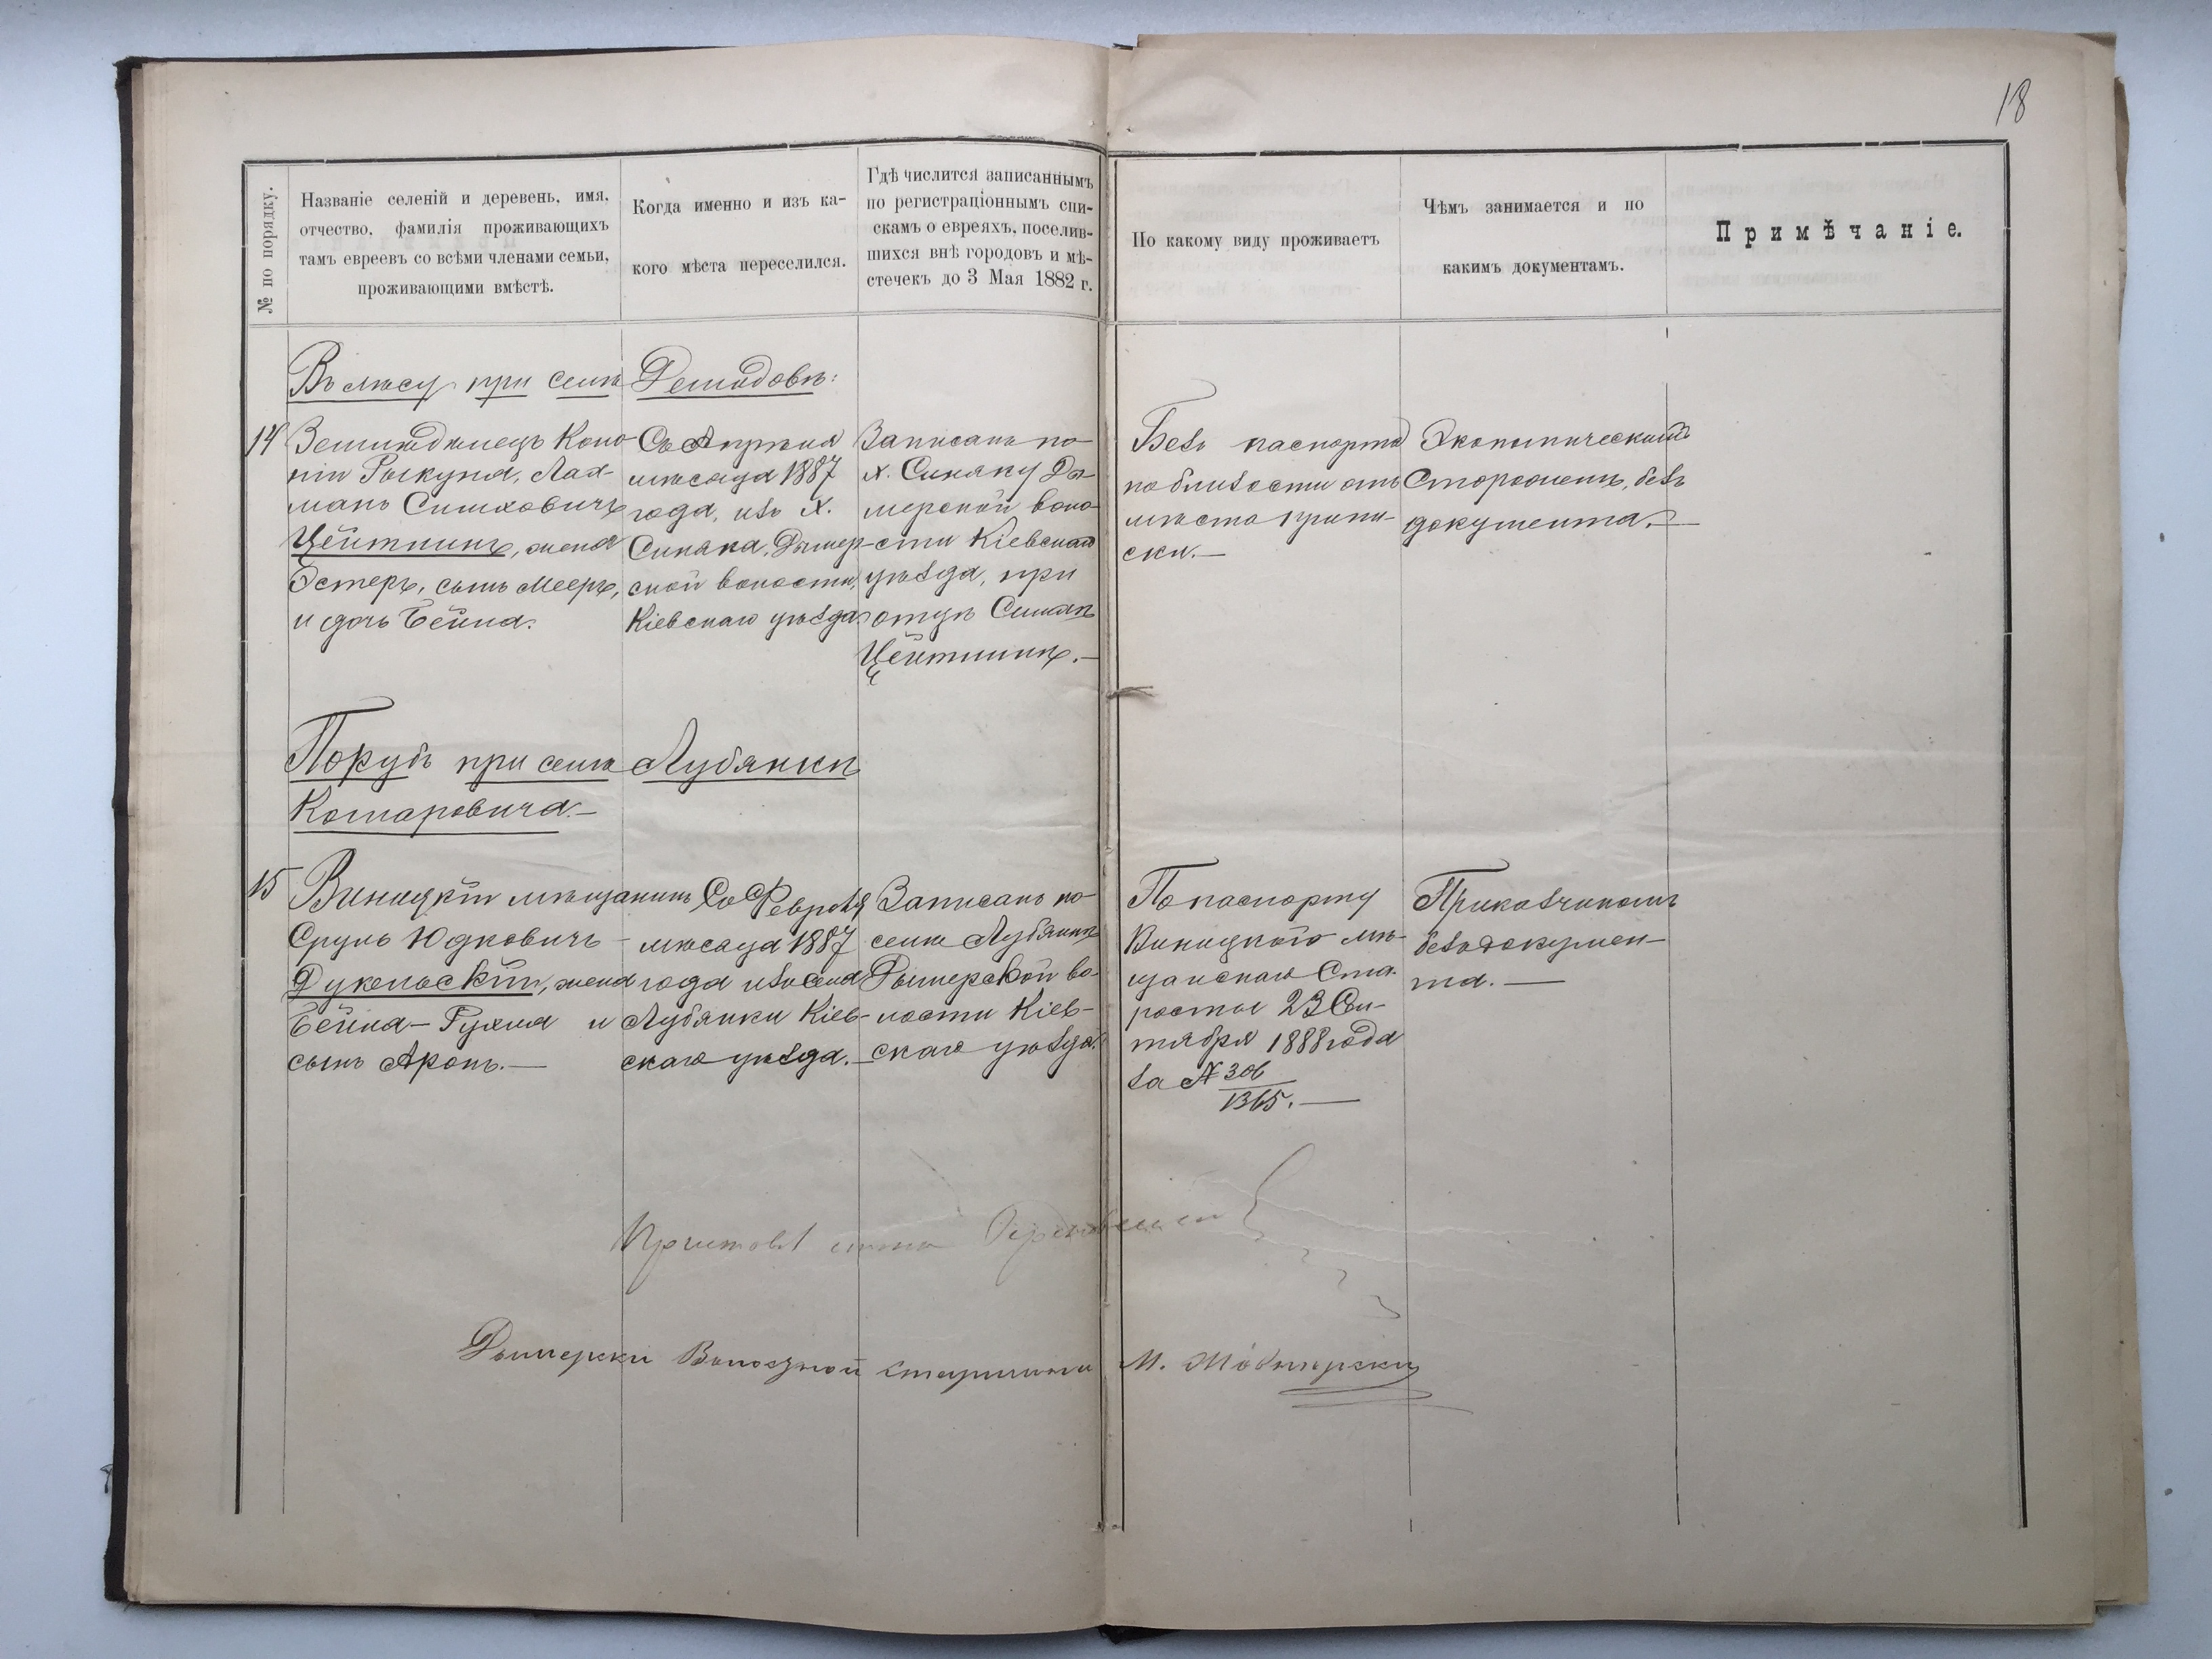 18
№ по порядку.
Названіе селеній и деревень, имя,
отчество, фамилія проживающихъ
тамъ евреевъ со всѣми членами семьи,
проживающими вмѣстѣ.
Когда именно и изъ ка-
кого мѣста переселился.
Гдѣ числится записаннымъ
по регистраціоннымъ спи-
скамъ о евреяхъ, поселив-
шихся внѣ городовъ и мѣ-
стечекъ до 3 Мая 1882 г.
По какому виду проживаетъ
Чѣмъ занимается и по
какимъ документамъ.
Примѣчаніе.
Въ лѣсу при селѣ Демидовѣ:
14
Земледѣлецъ Коло-
ніи Рыкуна, Лах-
манъ Симховичъ
Цейтлинъ, жена
Эстеръ, сынъ Мееръ,
и дочь Бейла.
Съ Апрѣля
мѣсяца 1887
года, изъ х.
Синяка, Дымер-
ской волости,
Кіевскаго уѣзда
Записанъ по
х. Синяку Ды-
мерской воло-
сти Кіевскаго
уѣзда, при
отцѣ Симхѣ
Цейтлинѣ.—
Безъ паспорта
по близости отъ
мѣста припи-
ски.—
Экономическимъ
Сторожемъ, безъ
документа.—
Порубъ при селѣ Лубянкѣ
Комаровича.—
15
Виницкій мѣщанинъ
Сруль Юдковичъ
Дукельскій, жена
Бейла-Рухля и
сынъ Аронъ.—
Со Февраля
мѣсяца 1887
года изъ села
Лубянки Кіев-
скаго уѣзда.—
Записанъ по
селѣ Лубянкѣ
Дымерской во-
лости Кіев-
скаго уѣзда.
По паспорту
Виницкого мѣ-
щанскаго Ста-
росты 23 Сен-
тября 1888 года
за №306
1365.—
Приказчикомъ
безъ докумен-
та.—
Приставъ стана
Дымерски Волостной старшина М.